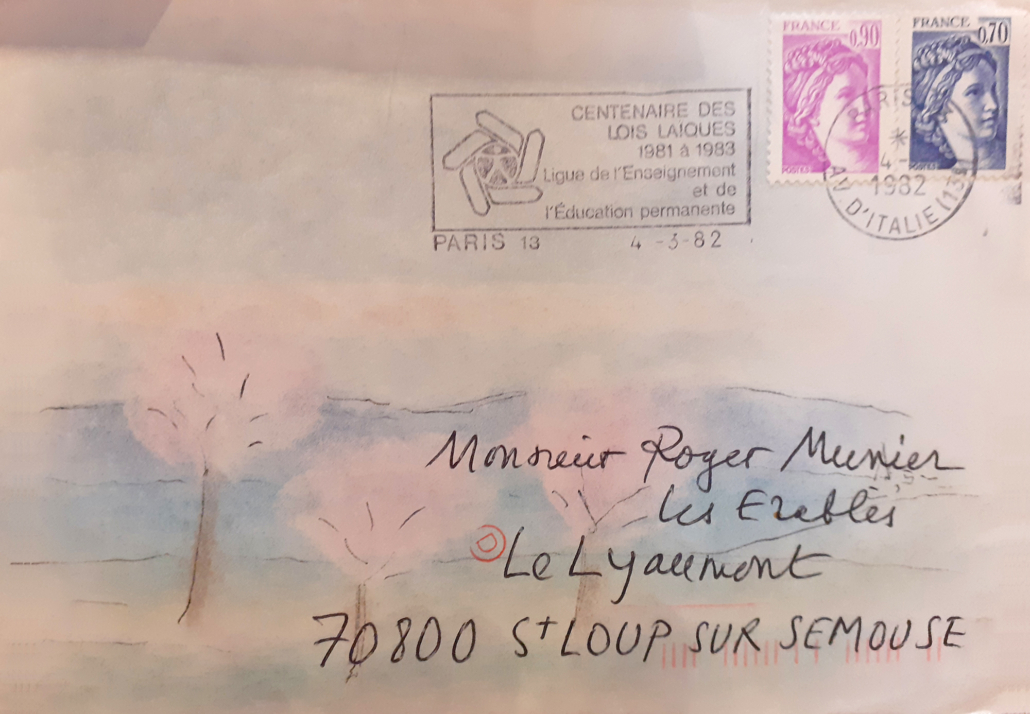 FRANCE 0,90
FRANCE 0,70
POSTES
POSTES
CENTENAIRE DES
LOIS LAIQUES
1981 à 1983
Ligue de l'Enseignement
et de
l'Éducation permanente
PARIS 13 4-3-82
4-
1982
AV. D'ITALIE (13
Monsieur Roger Munier
Les Erables
Le Lyaumont
70800 St LOUP SUR SEMOUSE